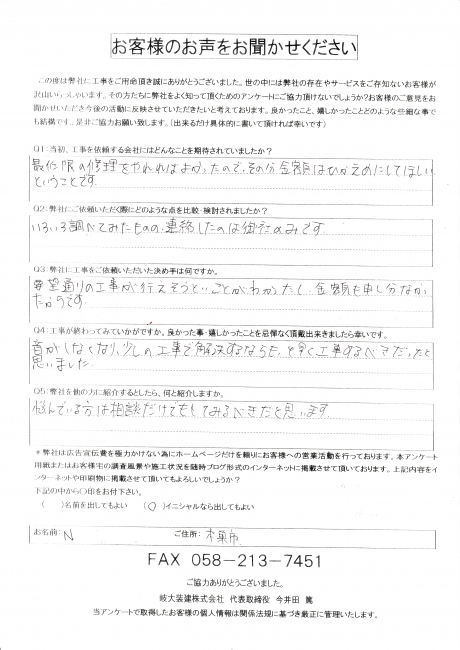 お客様のお声をお聞かせください
この度は弊社に工事をご用命頂き誠にありがとうございました。世の中には弊社の存在やサービスをご存知ないお客様が
沢山いらっしゃいます。その方たちに弊社をよく知って頂くためのアンケートにご協力頂けないでしょうか?お客様のご意見をお
聞かせいただき今後の活動に反映させていただきたいと考えております。良かったこと、嬉しかったことどのような些細な事で
も結構です。是非ご協力お願い致します。(出来るだけ具体的に書いて頂ければ幸いです)
Q1:当初、工事を依頼する会社にはどんなことを期待されていましたか?
最低限の修理をやれればよかったので、その分金額はひかえめにしてほしい
ということです。
Q2:弊社にご依頼いただく際にどのような点を比較・検討されましたか?
いろいろ調べてみたものの、連絡したのは御社のみです。
Q3:弊社に工事をご依頼いただいた決め手は何ですか。
希望通りの工事が行えそうということがわかったし、金額も申し分なかっ
たからです。
Q4:工事が終わってみていかがですか。良かった事・嬉しかったことを忌憚なく頂戴出来きましたら幸いです。
音がしなくなり、少しの工事で解決するなら、もっと早く工事するべきだったと
思いました。
Q5:弊社を他の方に紹介するとしたら、何と紹介しますか。
悩んでいる方は相談だけでもしてみるべきだと思います。
*弊社は広告宣伝費を極力かけない為にホームページだけを頼りにお客様への営業活動を行っております。本アンケート
用紙またはお客様宅の調査風景や施工状況を随時ブログ形式のインターネットに掲載させて頂いております。上記内容をイ
ンターネットや印刷物に掲載させて頂いてもよろしいでしょうか?
下記の中から○印をお付下さい。
( )名前を出してもよい (○)イニシャルなら出してもよい
お名前:N ご住所:本巣市
FAX 058-213-7451
ご協力ありがとうございました。
岐大装建株式会社 代表取締役 今井田 篤
当アンケートで取得したお客様の個人情報は関係法規に基づき厳正に管理いたします。